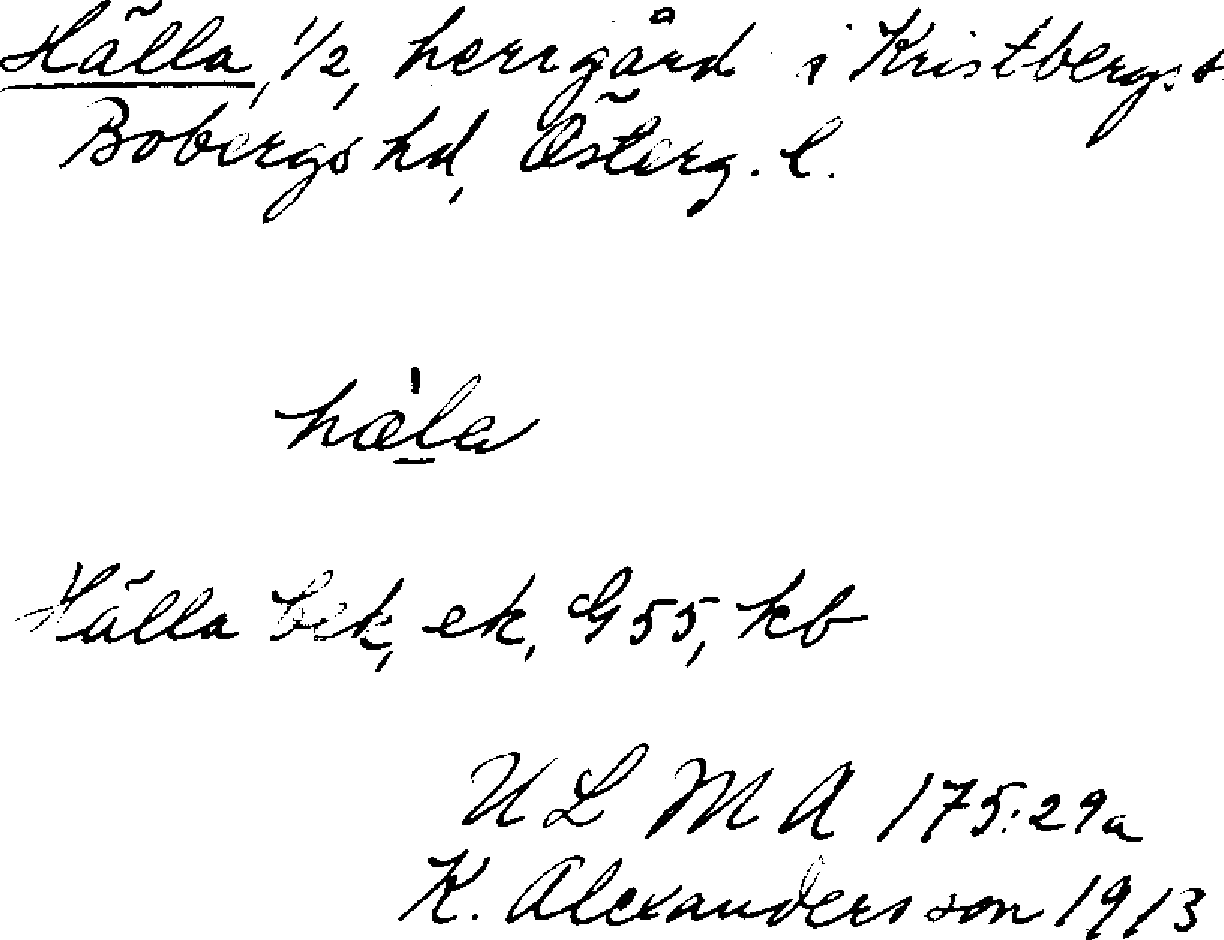 Hälla, 1/2, herrgård i Kristbergs s
Bobergs hd, Österg. l.
hæ̀la
Hälla bek, ek, G55, kb
ULMA 175:29a
K. Alexandersson 1913